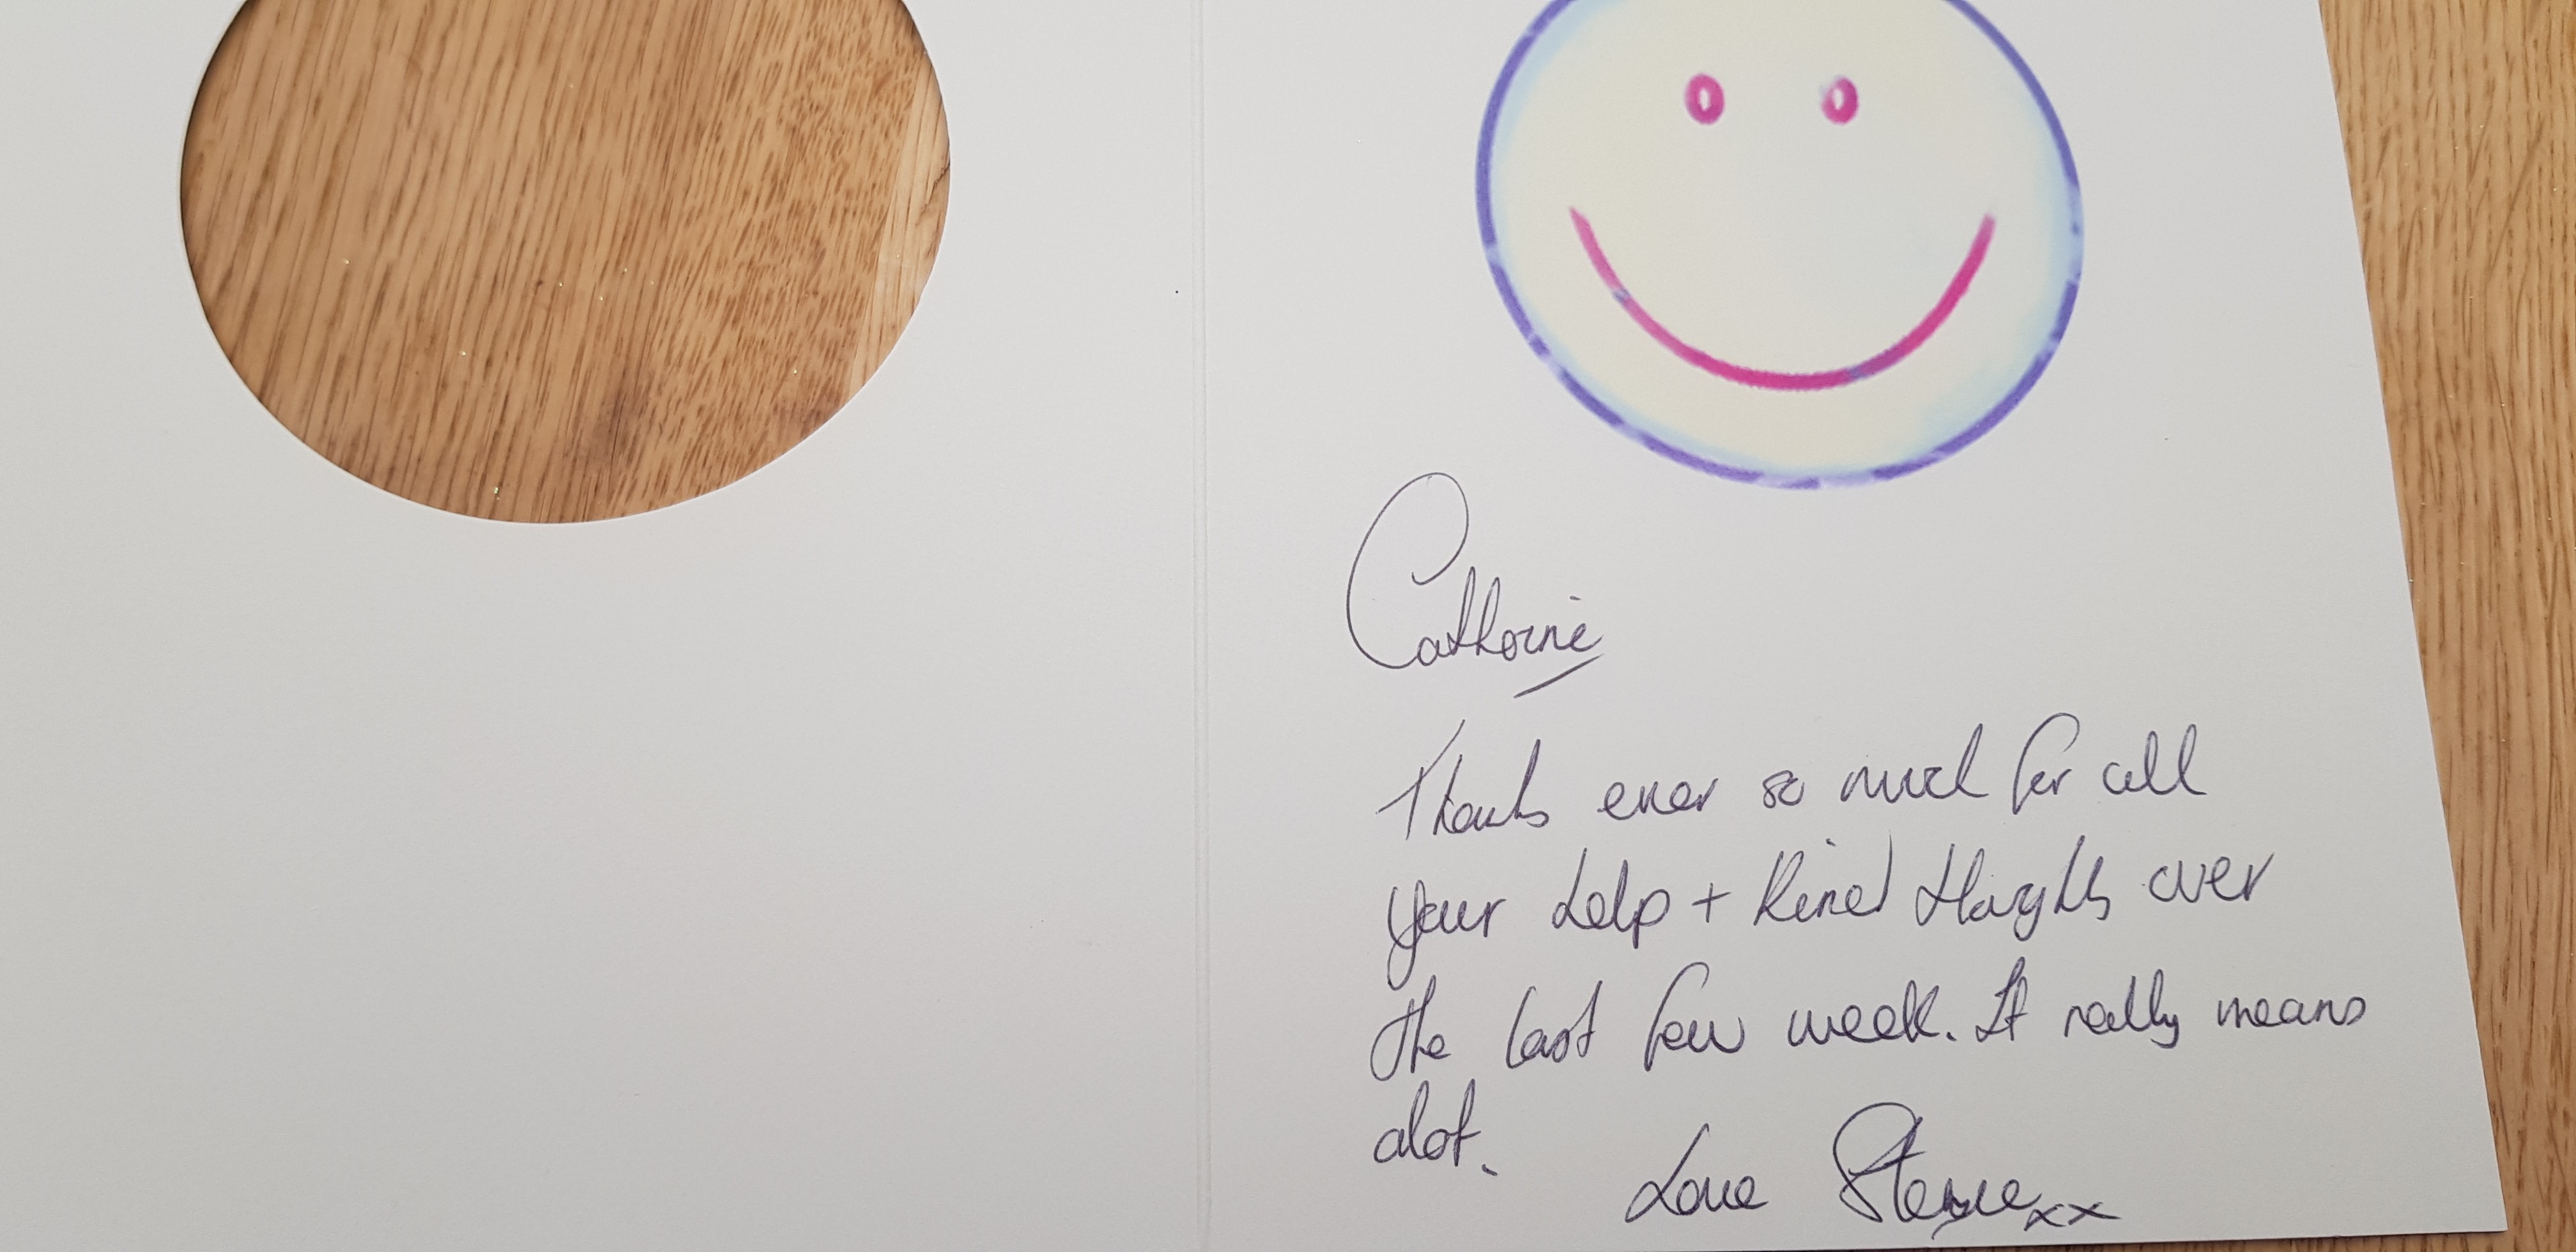 Catherine
Thanks ever so much for all
your help + kind thoughts over
the last few week. It really means
alot.
Love xx